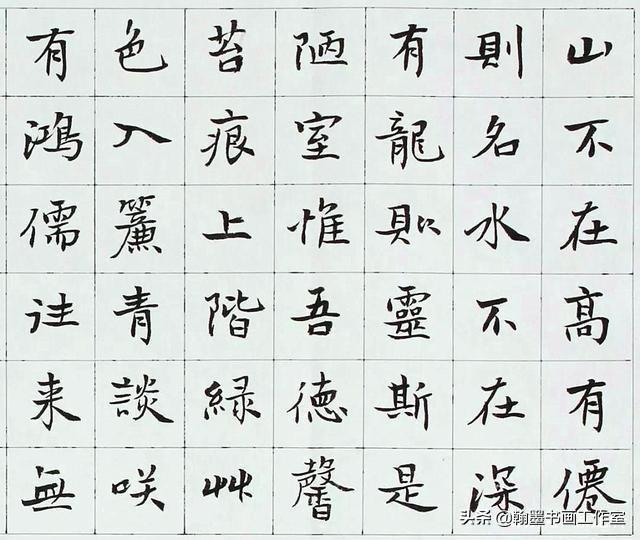 山不在高有僊
則名水不在深
有龍則靈斯是
陋室惟吾德馨
苔痕上階緑艸
色入簾青談咲
有鴻儒往来無
头条 @翰墨书画工作室